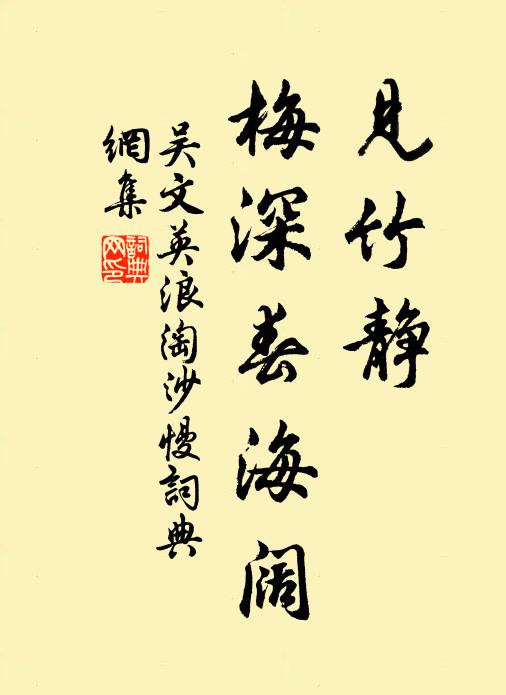 见竹静
梅深春海阔
吴文英浪淘沙慢詞典
網集
詞典网印